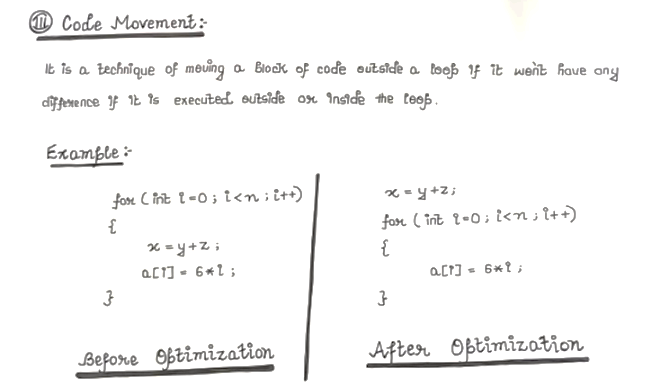 III Code Movement:-
It is a technique of moving a Block of code outside a loop if it won't have any
difference if it is executed outside or inside the loop.
Example:-
for (int i=0; i<n; i++)
{
x = y+z;
a[i] = 6*i;
}
Before Optimization
x = y+z;
for (int i=0; i<n; i++)
{
a[i] = 6*i;
}
After Optimization